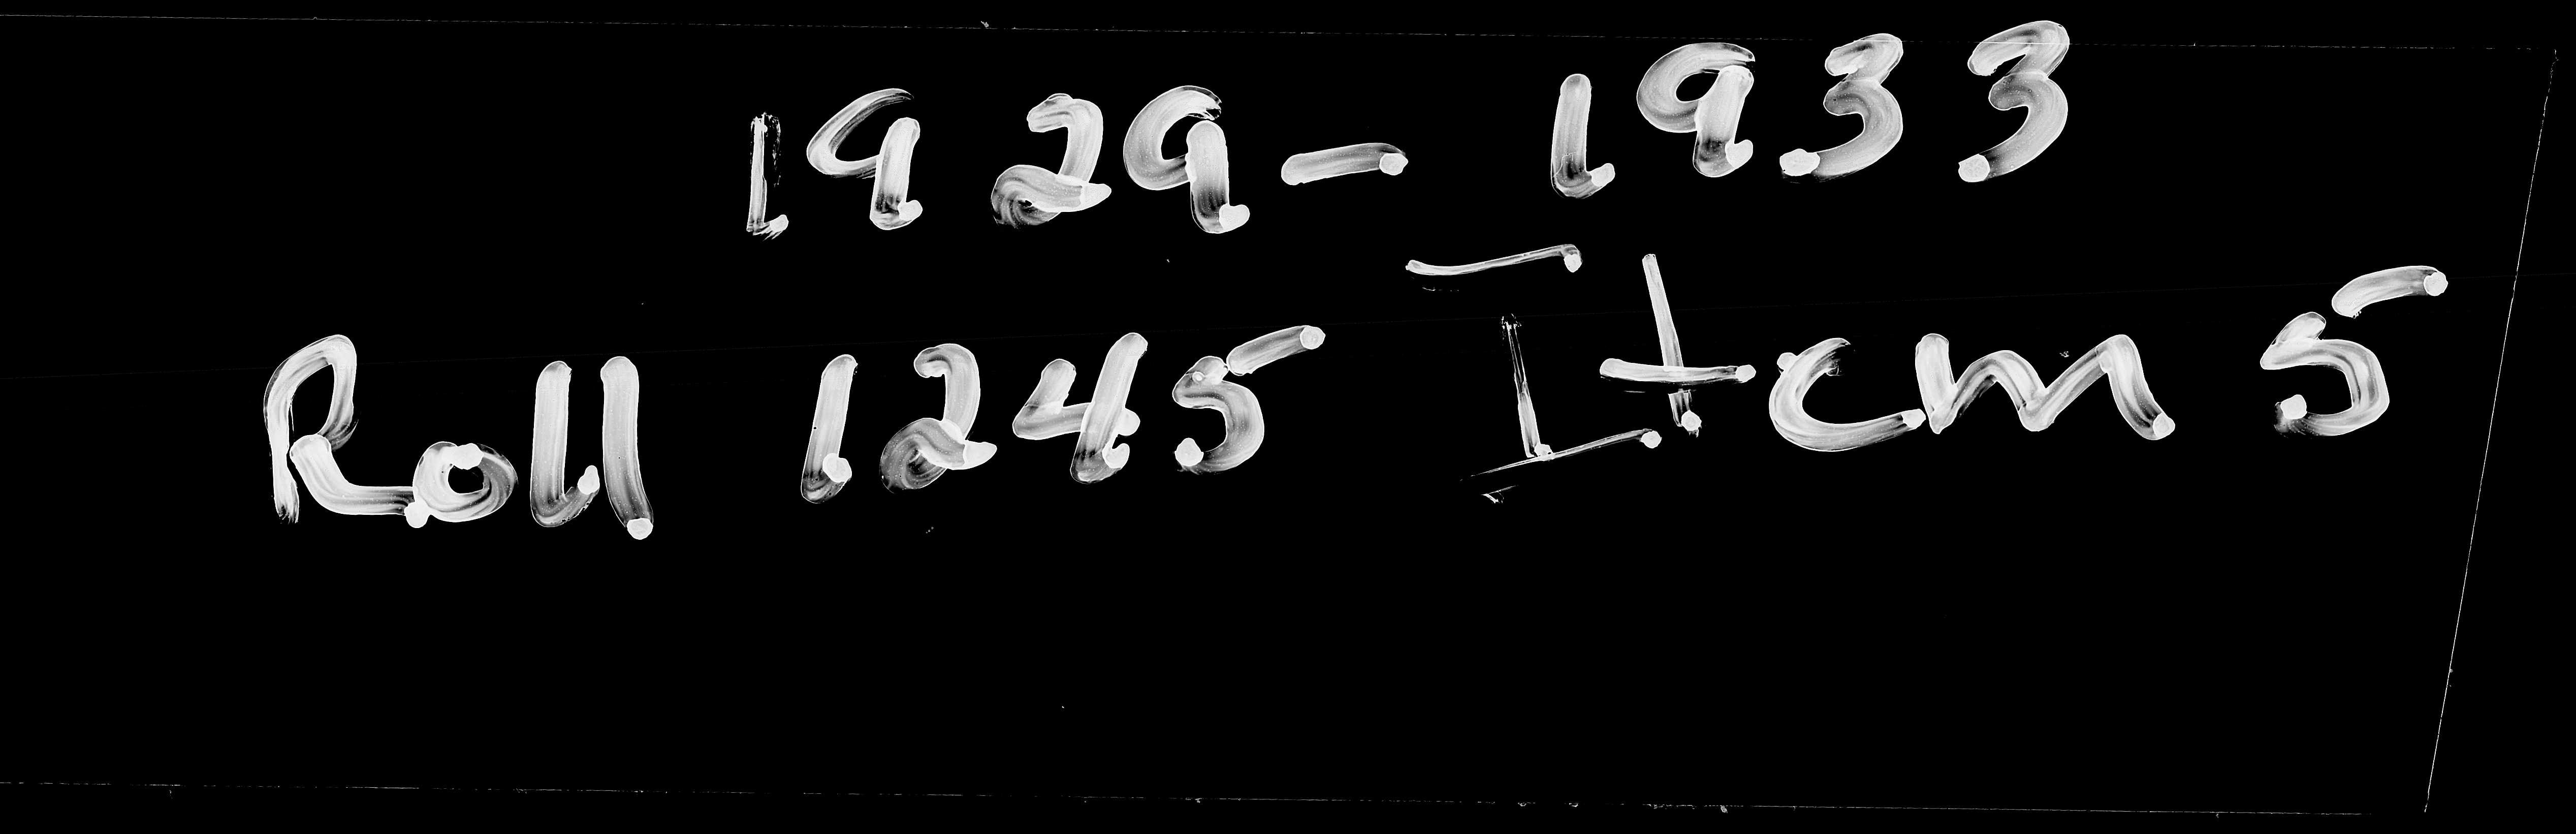 1929- 1933
Roll 1245 Itcm 5